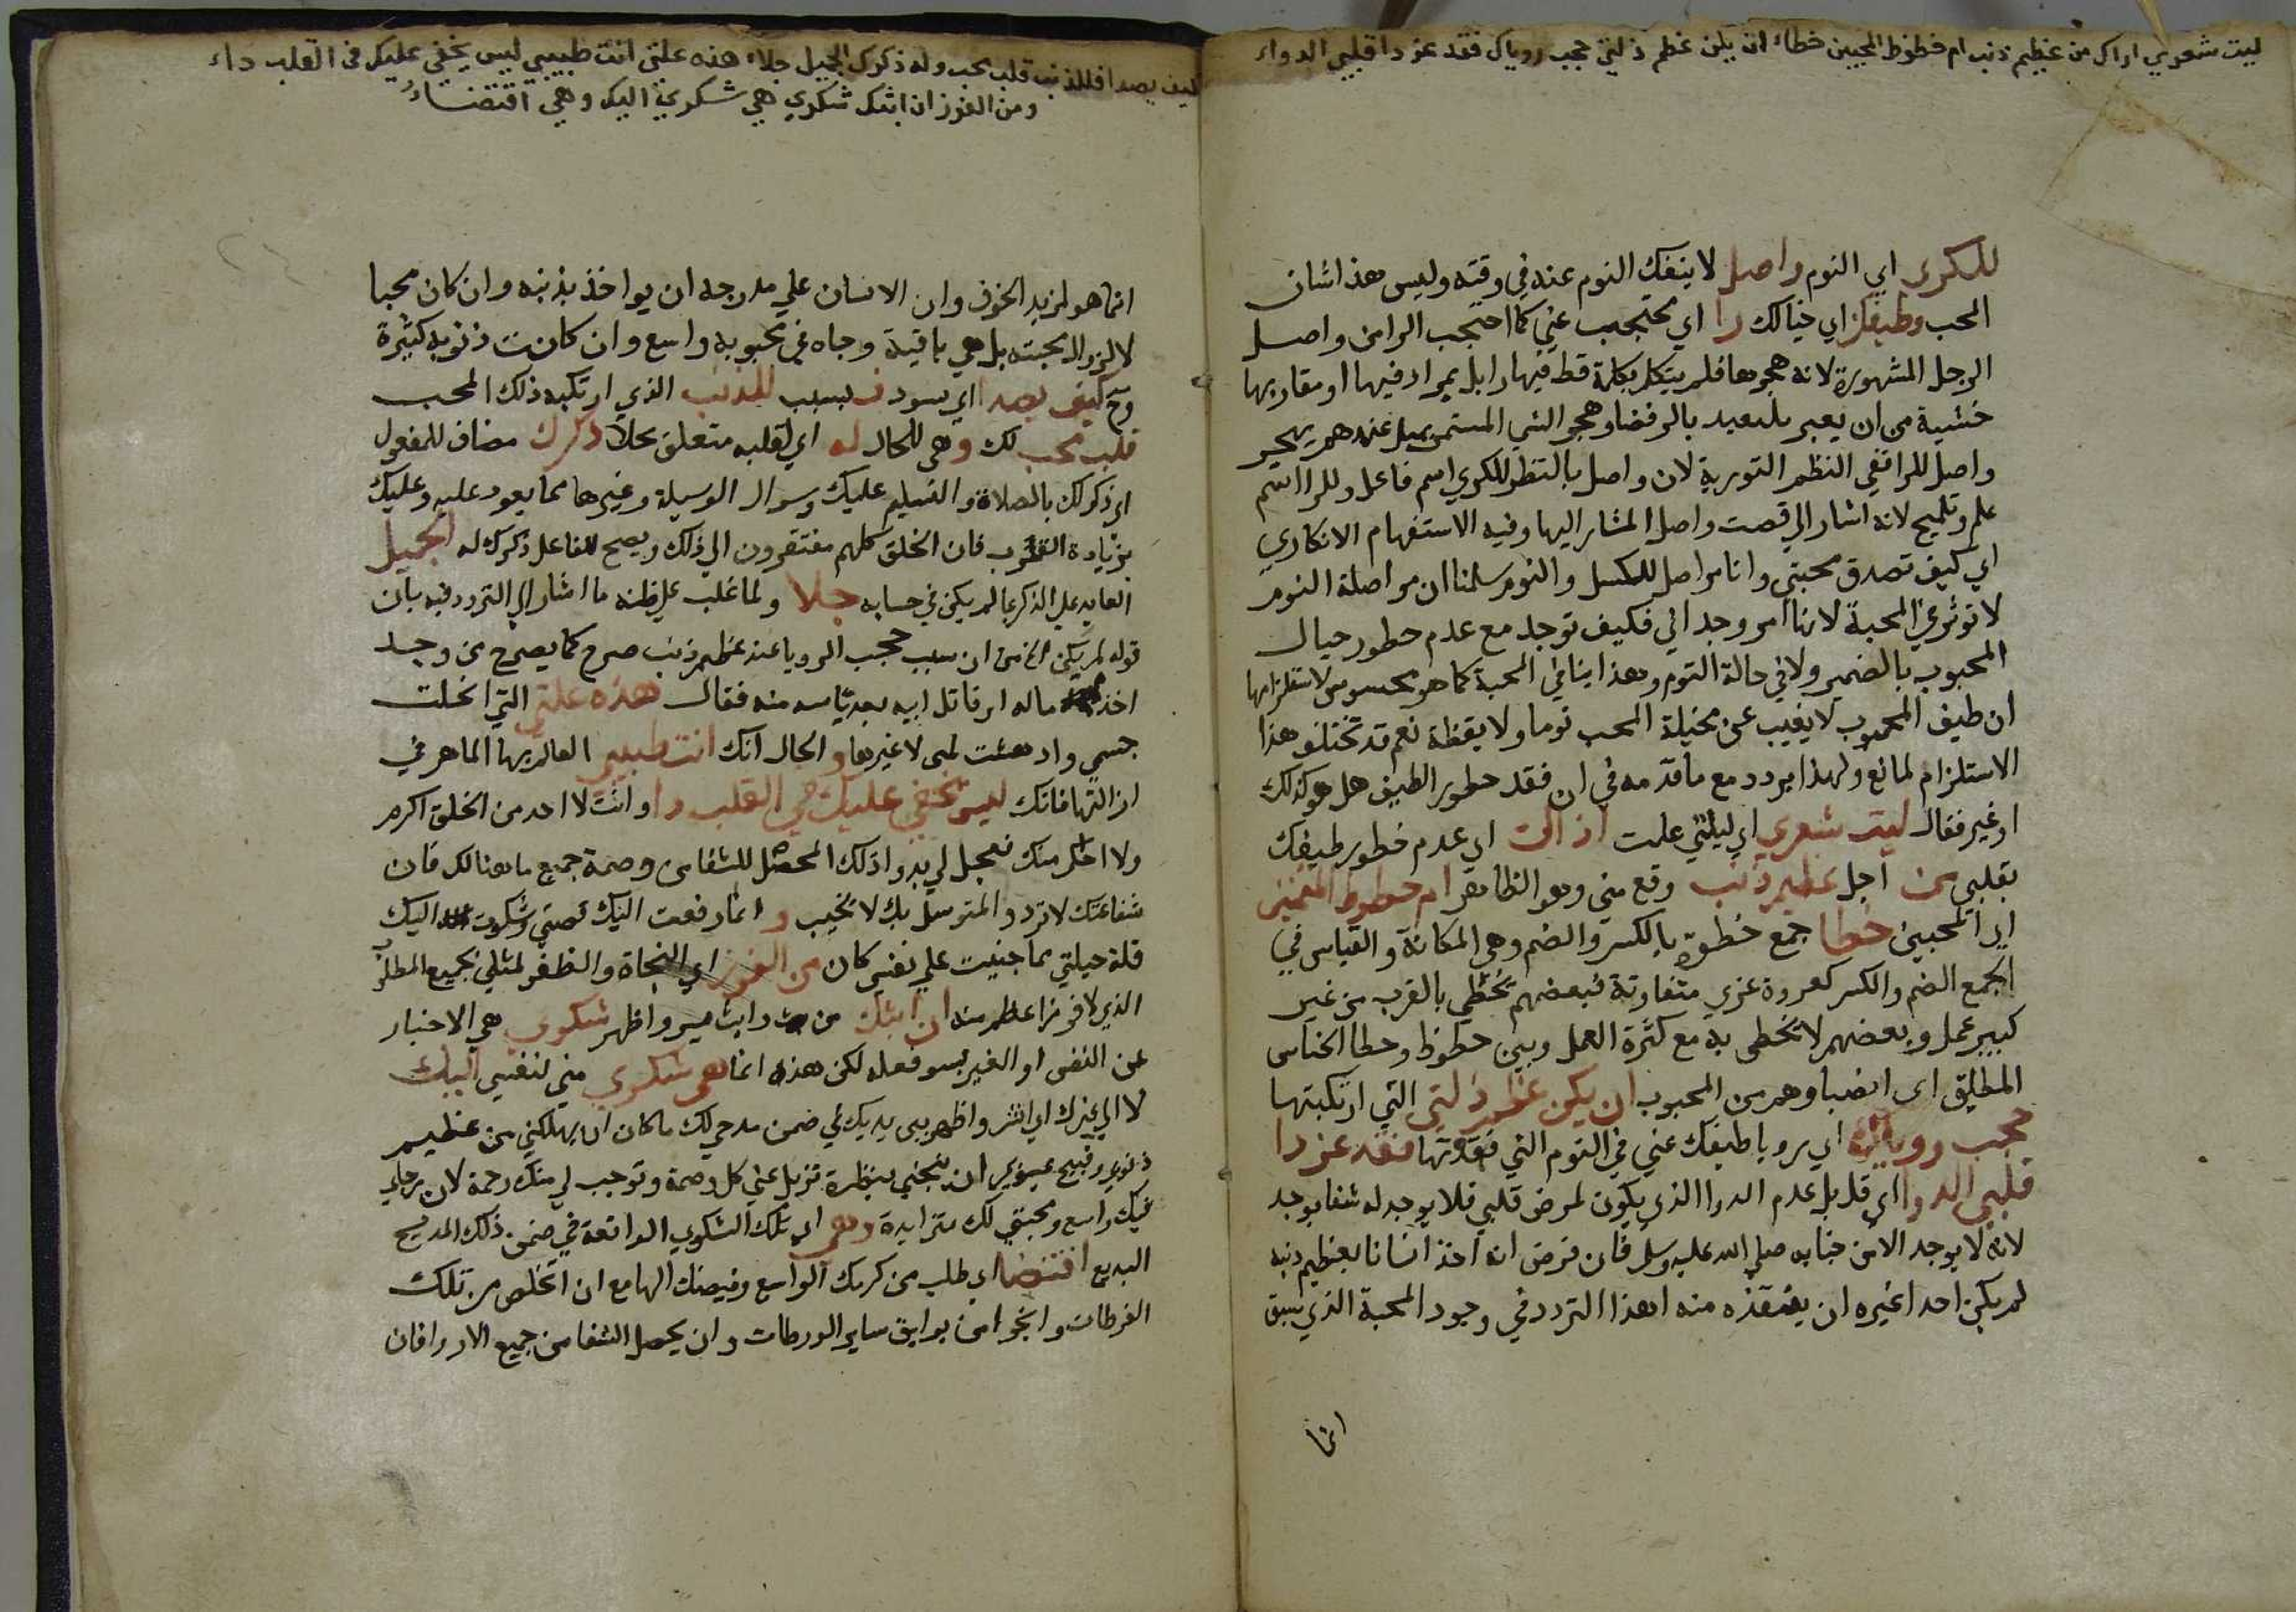 ليت شعري اذاك من عظيم ذنب ام حظوظ المحبين خطاء ان يكن عظم زلتي حجب روياك فقد عز دا قلبي الدواء
للكرى اي النوم واصل لا ينفك النوم عنه في وقته وليس هذا شان
المحب وطيفك اي خيالك را اي محتجب عني كما احتجب الرا من واصل
الرجل المشهورة لانه هجرها فلم يتكلم بكلمة قط فيها را بل بمرادفيها او مقاربها
خشية من ان يعبر بالرفضا وهجر الشي المستمر
واصل للرا ففي النظم التورية لان واصل بالنظر للكري اسم فاعل وللرا اسم
علم وتلميح لانه اشار الي قصت واصل المشار اليها وفيه الاستفهام الانكاري
اي كيف تصدق محبتي وانا مواصل للكسل والنوم سلمنا ان مواصلة النوم
لا توثر في المحبة لانها امر وجداني فكيف توجد مع عدم خطور خيال
المحبوب بالضمير ولا في حالة النوم وهذا ينافي المحبة كما هو محسوس لاستلزامها
ان طيف المحبوب لا يغيب عن مخيلة المحب نوما ولا يقظة نعم قد تختلف هذا
الاستلزام لمانع ولهذا يردد مع ما قدمه في ان فقد خطور الطيف هل هو كذلك
او غير فقال ليت شعري اي ليتني علمت اذاك اي عدم خطور طيفك
بقلبي من اجل عظيم ذنب وقع مني وهو الظاهر ام حظوظ المتمنين
اي المحبين خطا جمع خطوة بالكسر والضم وهي المكانة والقياس في
الجمع الضم والكسر كعروة عري متفاوتة فبعضهم يحظي بالقرب من غير
كبير عمل وبعضهم لا يحظى به مع كثرة العمل وبين حظوظ وحظا الجناس
المطلق اي انصباوهم من المحبوب ان يكن عظم زلتي التي ارتكبتها
حجب روياك اي رويا طيفك عني في النوم التي فقدتها فقد عز دا
قلبي الدوا اي قل بل عدم الدوا الذي يكون لمرض قلبي فلا يوجد له شفا يوجد
لانه لا يوجد الا من جنابه صلي الله عليه وسلم فان فرض انه اخذ انسانا بعظيم ذنبه
لم يكن احدا غيره ان ينقذه منه اهذا التردد في وجود المحبة الذي سبق
انما
كيف يصدا فللذنب قلب محب وله ذكرك الجميل جلاء هذه علتي انت طبيبي ليس يخفى عليك في القلب داء
ومن الفوز ان ابثك شكوي هي شكوي اليك وهي اقتضاء
انما هو لمزيد الخوف وان الانسان علي مدرجه ان يواخذ بذنبه وان كان محبا
لا لزوال محبته بل هي باقية وجاه في محبوبه واسع وان كانت ذنوبه كثيرة
وح كيف يصدا اي يسود ف بسبب للذنب الذي ارتكبه ذلك المحب
قلب محب لك و هي للحال له اي لقلبه متعلق بجلا ذكرك مضاف للمفعول
اي ذكره لك بالصلاة والتسليم عليك وسوال الوسيلة وغيرها مما يعود عليه وعليك
بزيادة القرب فان الخلق كلهم مفتقرون الي ذلك ويصح للفاعل ذكرك له الجميل
العايد علي الذكر بما لم يكن في حسابه جلا ولما غلب علي ظنه ما اشار الي التردد فيه بان
قوله لم يكن الخ من ان سبب حجب الرويا عنه عظيم ذنب صرح كما يصرح من وجد
اخذ ماله او قاتل ابيه بعد ياسه منه فقال هذه علتي التي انحلت
جسمي وادهشت لبي لا غيرها و الحال انك انت طبيبي العالم بها الماهر في
ازالتها فانك ليس تخفي عليك في القلب دا وانت لا احد من الخلق اكرم
ولا احلم منك فعجل لي بدوا ذلك المحصل للشفا من وصمة جميع ما هنالك فان
شفاعتك لا ترد والمتوسل بك لا يخيب و انما رفعت اليك قصتي وشكوت اليك
قلة حيلتي بما جنيت علي نفسي كان من الفوز اي النجاة والظفر لمثلي بجميع المطلوب
الذي لا فوز اعظم منه ان ابثك من واظهر شكوي هي الاخبار
عن النفس او الغير بسو فعله لكن هذه انما هي شكوي مني لنفسي اليك
لا الي غيرك اي انشر واظهر بين يديك في ضمن مدحي لك ما كان ان يهلكني من عظيم
ذنوبي وقبيح عيوبي ان تنجني بنظرة تزيل عني كل وصمة وتوجب لي منك رحمة لان رجاي
فيك واسع ومحبتي لك متزايدة وهي اي تلك الشكوي الواقعة في ضمن ذلك المديح
البديع اقتضا اي طلب من كرمك الواسع وفيضك الهامع ان اتخلص من تلك
الفرطات وانجوا من بوايق ساير الورطات وان يحصل الشفا من جميع الادوا فان